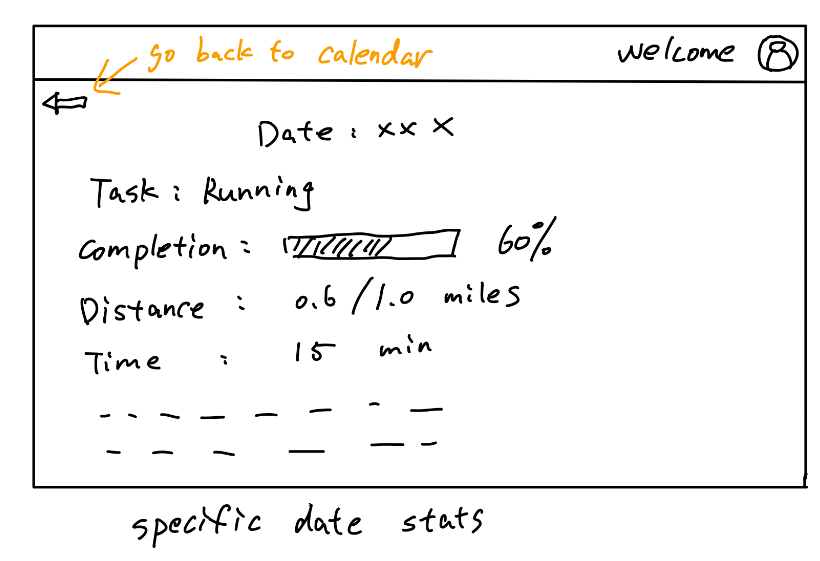 go back to calendar
welcome
Date : xx X
Task : Running
Completion : 60%
Distance : 0.6 / 1.0 miles
Time : 15 min
specific date stats